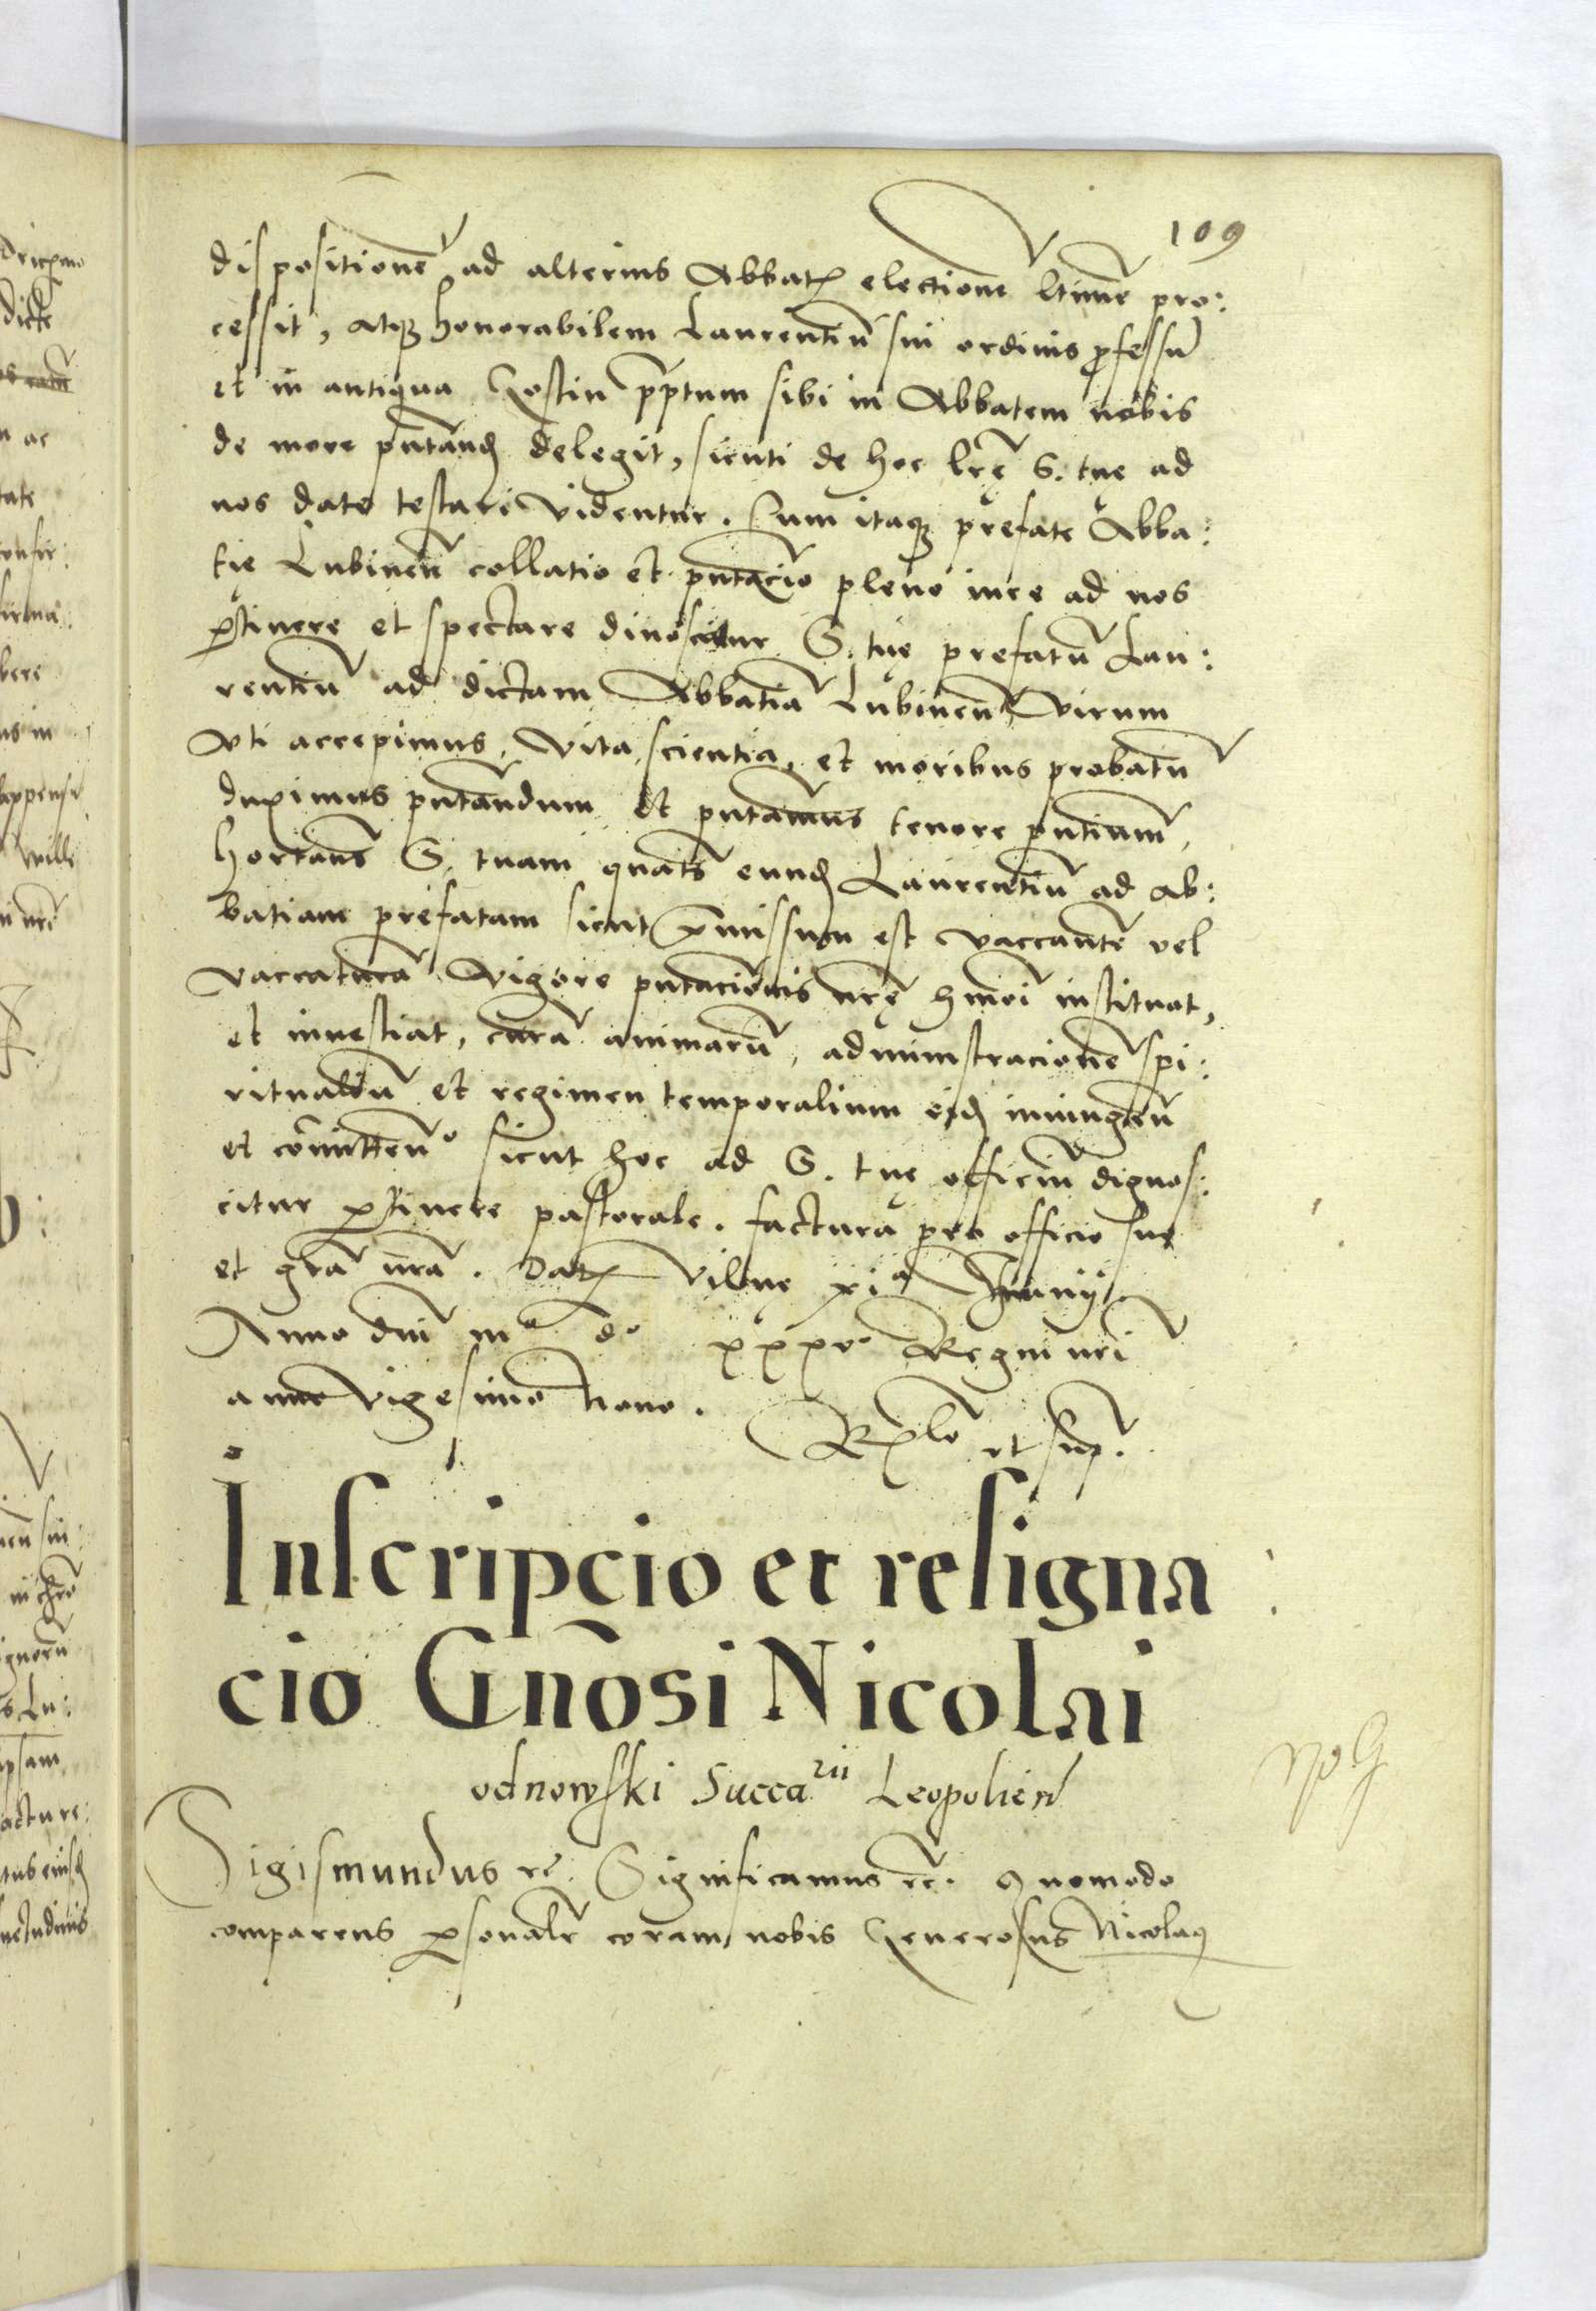 109
dispositionē ad alterius Abbatꝭ electione ltime pro:
cessit, atqꝫ honorabilem Laurentiū sui ordinis ꝓfessū
et in antiqua Gostin p̄ptum sibi in Abbatem nobis
de more pñtandꝫ delegit, sicuti de hoc lrę S. tuę ad
nos date testari videntur. Cum itaqꝫ pręfate Abba:
tię Lubineñ collatio et pñtacio pleno iure ad nos
ꝑtinere et spectare dinoscatur S. tuę prefatū Lau:
rentiū ad dictam Abbatiā Lubineñ virum
vti accepimus, vita, scientia, et moribus probatū
duximus pñtandum et pñtamus tenore pñtium,
hortañs S. tuam quateñs eundꝫ Laurentiū ad Ab:
batiam prefatam sicut p̄missum est vaccantē vel
vaccaturā vigore pñtacionis nrę hmōi instituat,
et inuestiat, curā animarū, administracionē spi:
ritualiū et regimen temporalium eidꝫ iniungeñ
et cōmitteñ sicut hoc ad S. tuę officiū dignos:
citur ꝑtinere pastorale. factura pro officio suo
et gr̄a nr̄a. Datꝭ Vilnę xiª Iunij
Anno dnī mº dº xxxvº Regni nri
anno vigesimo nono.
Rꝑlō ut sup.
Inscripcio et resigna
cio Gñosi Nicolai
odnowski Succa rii Leopolień
Sigismundus rc̄. Significamus rc̄. Quomodo
comparens ꝑsonalr̄ coram nobis Generosus Nicolaꝰ